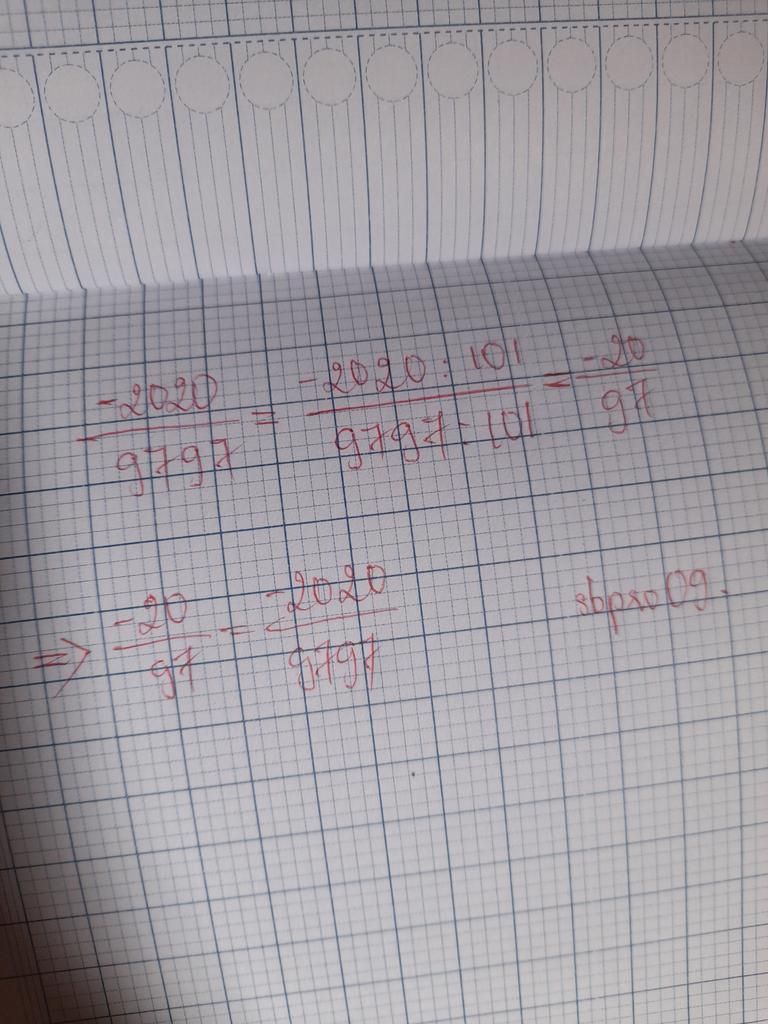 -2020/9797 = -2020 : 101/9797 : 101 = -20/97
=> -20/97 = -2020/9797 sbpro09.